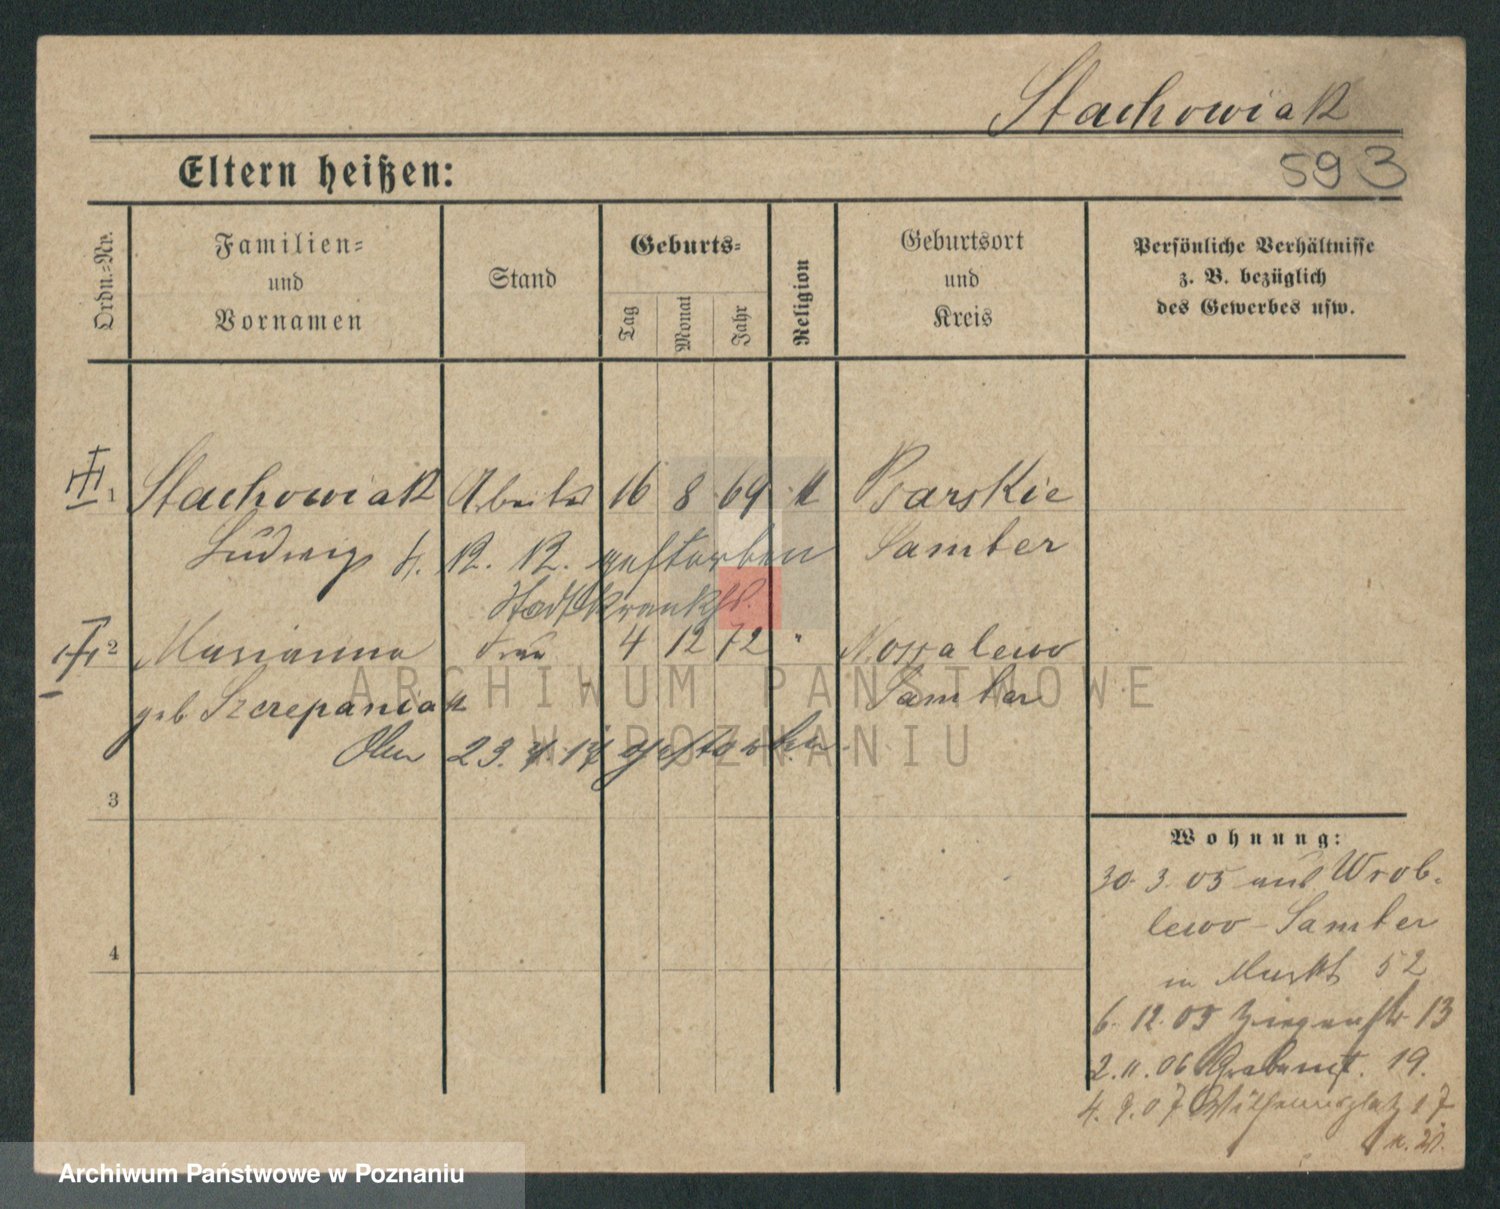 Stachowiak
593
Eltern heißen:
Ordn.-Nr.
Familien-
und
Vornamen
Stand
Geburts-
Tag
Monat
Jahr
Religion
Geburtsort
und
Kreis
Persönliche Verhältnisse
z. B. bezüglich
des Gewerbes usw.
1 Stachowiak Arbeiter 16 8 69 k Psarskie
Ludwig 4. 12. 12. gestorben Samter
Stadtkrankhs.
2 Marianna Frau 4 12 72 " Nossalewo
geb Szczepaniak Samter
23. 4. 17 gestorben
3
4
Wohnung:
30. 3. 05 aus Wrob-
lewo - Samter
n Markt 52
6. 12. 05 Ziegenstr 13
2. 11. 06 Grabenst. 19.
4. 9. 07 Wilhelmsplatz 17
ARCHIWUM PAŃSTWOWE
W POZNANIU
Archiwum Państwowe w Poznaniu